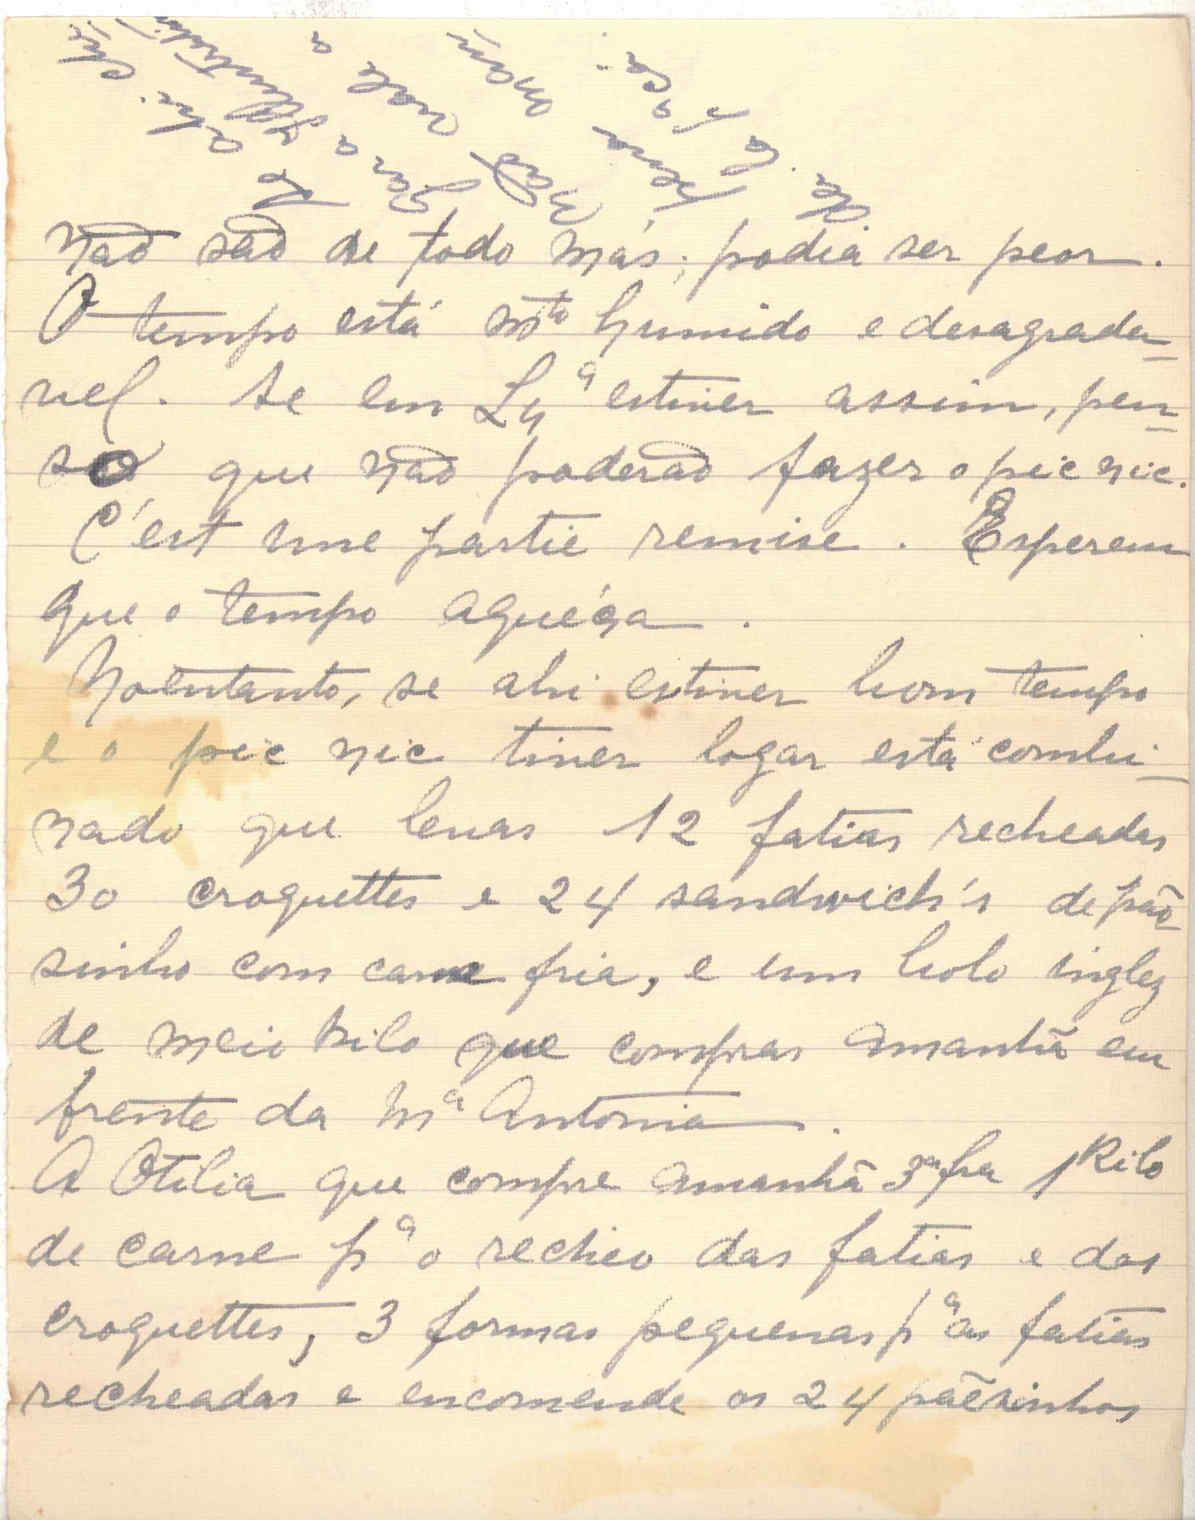 não são de todo más; podia ser peor.
O tempo está mto humido e desagrada-
vel. Se em Lxª estiver assim, pen-
so que não poderão fazer o pic nic.
C'est une partie remise. Esperem
que o tempo aqueça.
No entanto, se ahi estiver bom tempo
e o pic nic tiver logar está combi-
nado que levas 12 fatias recheadas
30 croquettes e 24 sandwich's de pão-
sinho com carne fria, e um bolo inglez
de meio kilo que compras amanhã em
frente da Mª Antonia.
A Otilia que compre amanhã 3ª fra 1 kilo
de carne pª o recheio das fatias e dos
croquettes, 3 formas pequenas pª as fatias
recheadas e encomende os 24 pãesinhos